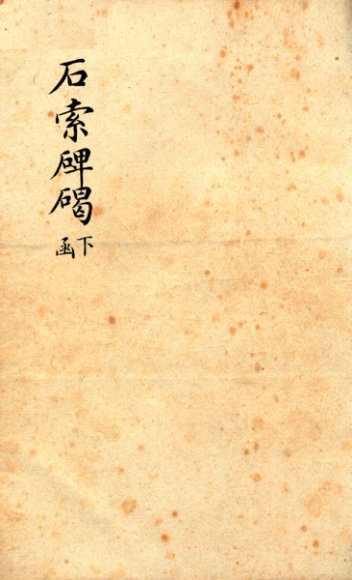 石索碑碣
下函